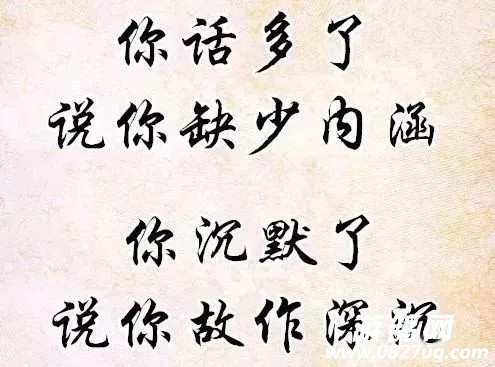 你话多了
说你缺少内涵
你沉默了
说你故作深沉
www.0827ug.com